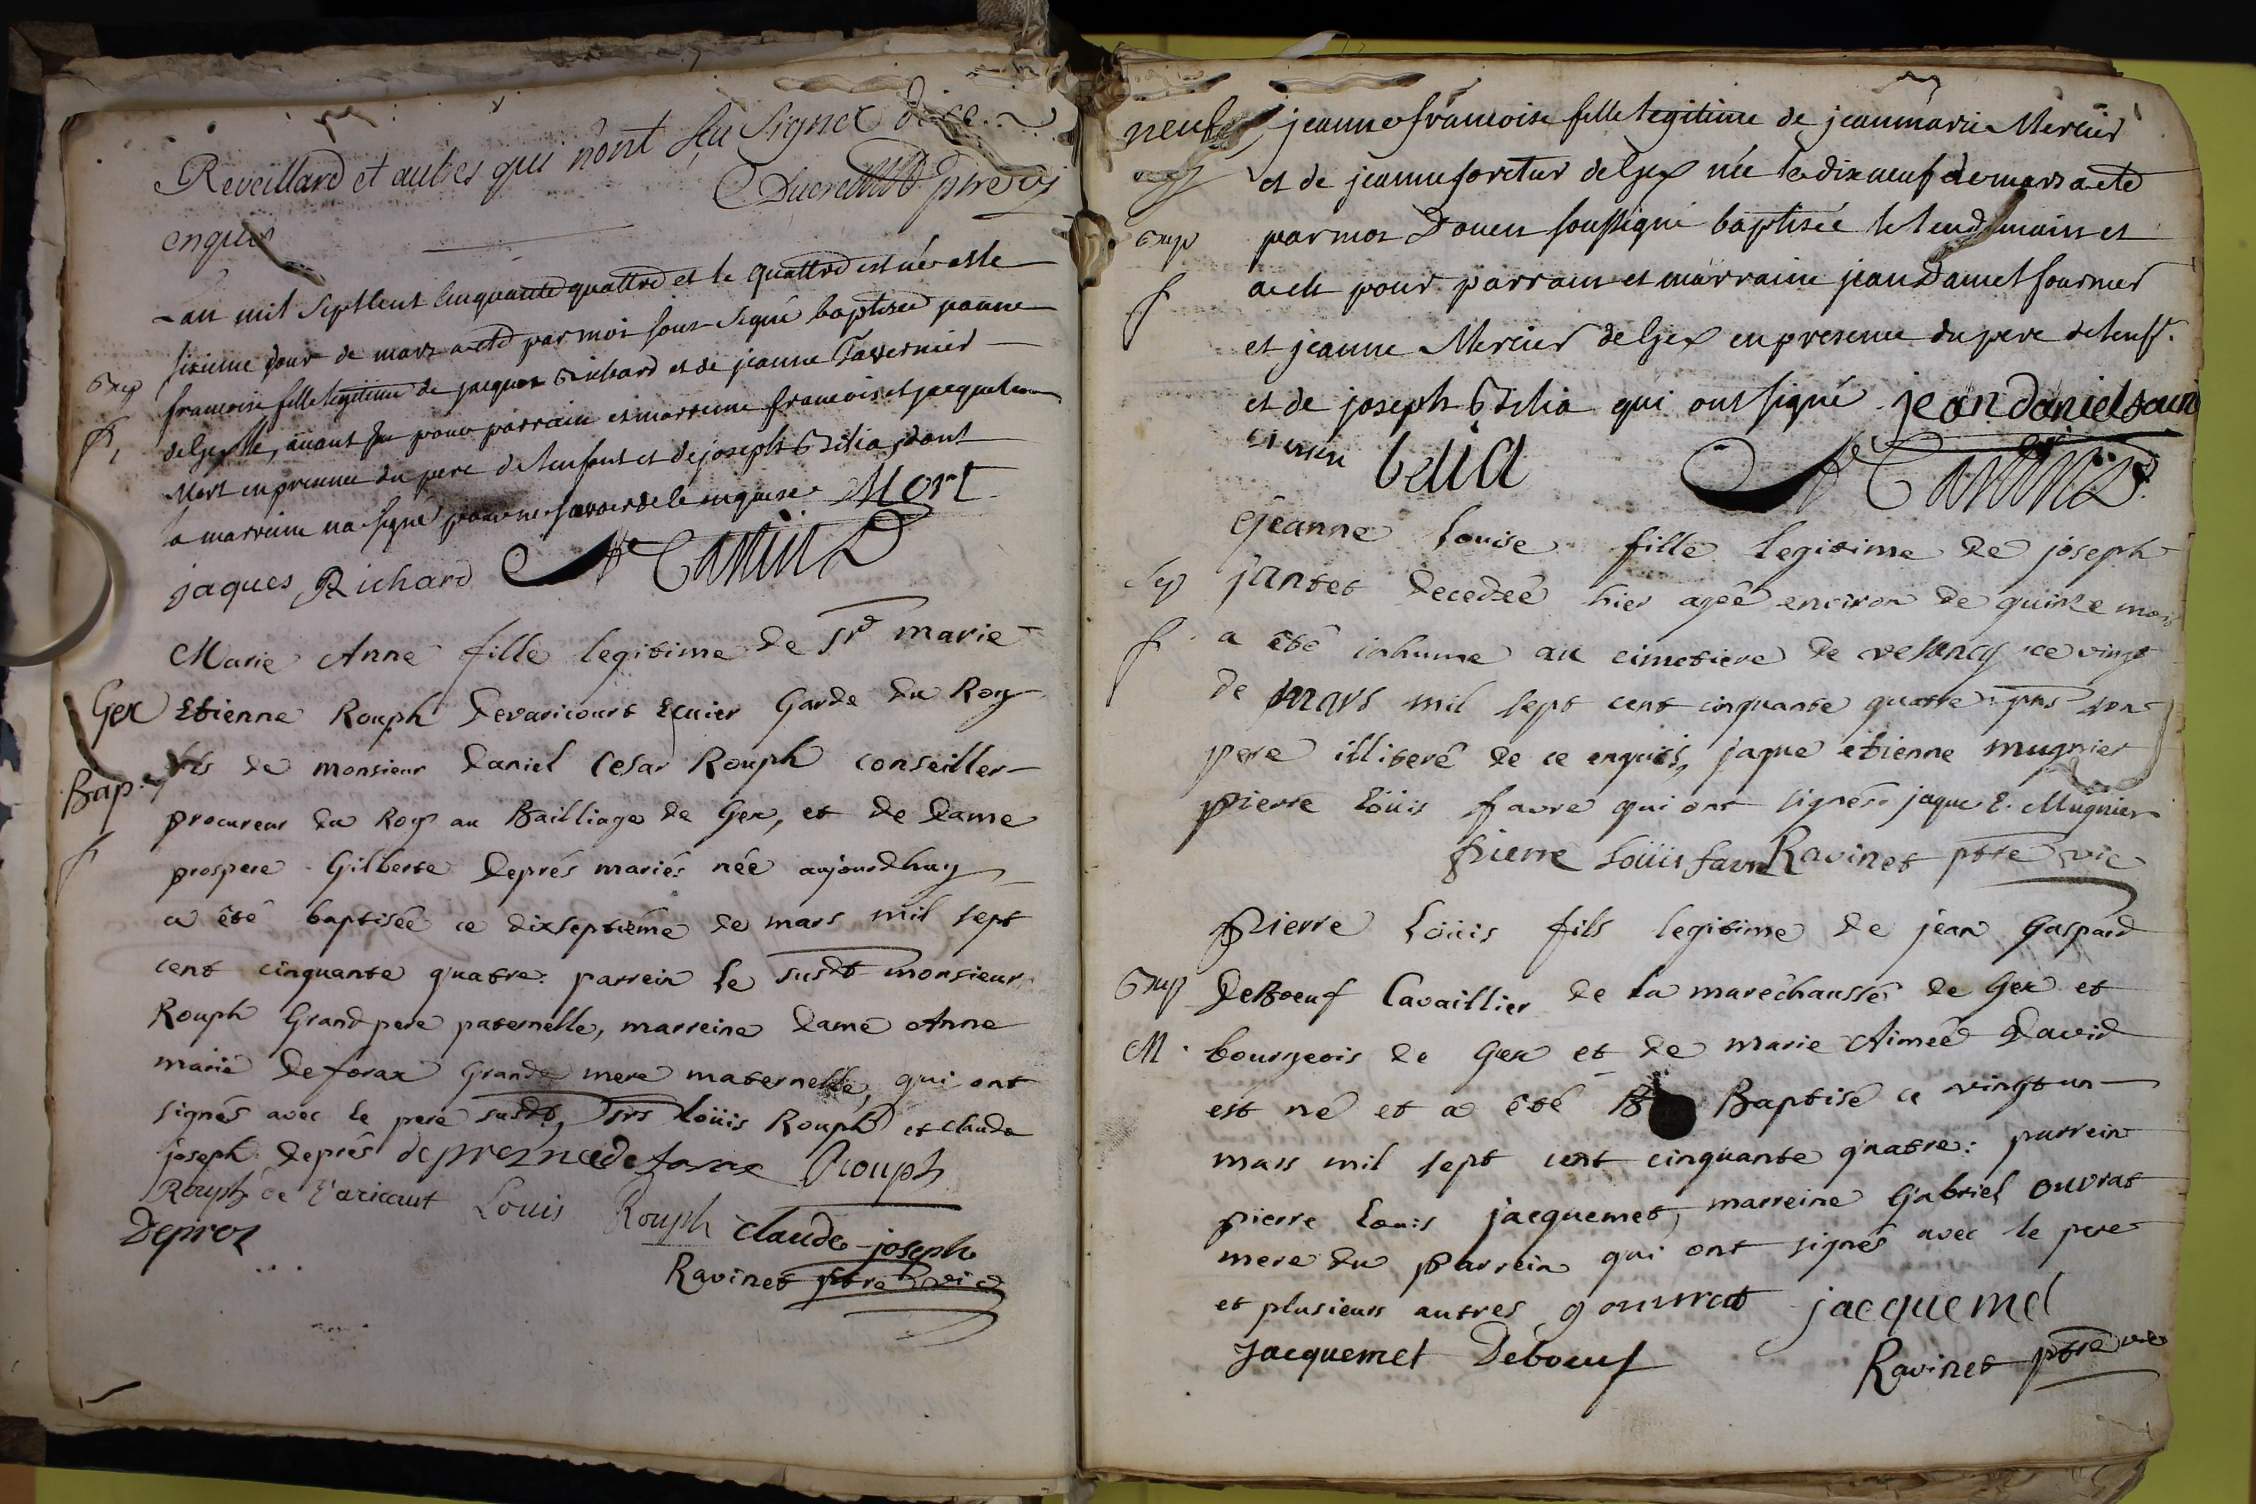 Reveillard et autres qui n'ont sçu signer de ce
enquis Ducret ptre vic
L'an mil sept cent cinquante quattre et le quattre est née et le
sixieme jour de mars a eté par moi sous signé baptisée jeanne
Bap francoise fille legitime de jacques Richard et de jeanne Tavernier
f de Gex le, aiant eu pour parrain et marreine francois et jacqueline
Mort en presence du pere de l'enfant et de joseph Bélia, dont
la marreine n'a signé pour ne savoir de le enquise Mort
jaques Richard
Marie Anne fille legitime de Sr marie
Gex Etienne Rouph Devaricourt Ecuier Garde du Roy
fils de monsieur Daniel Cesar Rouph conseiller
Bap. procureur du Roy au Bailliage de Gex, et de Dame
f prospere Gilberte Deprés mariés née aujourdhuy
a êté baptisée ce dixseptiéme de mars mil sept
cent cinquante quatre: parrein le susdt monsieur
Rouph Grand pere paternelle, marreine Dame Anne
marie Deforax Grande mere maternelle, qui ont
signés avec le pere susdt, Srs Loüis Rouph et claude
joseph Deprés deprez née de forax Rouph
Rouph de Varicourt Louis Rouph claude-joseph
Deprez
Ravinet ptre vic
jeanne francoise fille legitime de jean marie Mercier
et de jeanne de Gex née le dix neuf de mars a eté
Bap par moi Doyen soussigné baptisée le lendemain et
f a eu pour parrain et marraine jean Daniel fournier
et jeanne Mercier de Gex en presence du pere de l'enft.
et de joseph Bélia qui ont signé jean daniel
belia
Jeanne Louise fille legitime de joseph
Sep jantet decedée hier agée environ de quinze mois
f a êté inhume au cimetiere de vesancy ce vingt
de mars mil sept cent cinquante quatre pnts son
pere illiteré de ce enquis, jaque etienne mugnier
pierre Loüis favre qui ont signés jaque E. Mugnier
pierre Loüis favre Ravinet ptre vic
Pierre Loüis fils legitime de jean Gaspard
Bap DeBoeuf Cavaillier de la maréchaussé de Gex et
M. bourgeois de Gex et de marie Aimée David
est né et a êté Baptisé ce vingt un
mars mil sept cent cinquante quatre: parrein
pierre Louis jacquemet, marreine Gabriel ouvrat
mere du Parrein qui ont signés avec le pere
et plusieurs autres g ouvrat jacquemet
Jacquemet Deboeuf
Ravinet ptre vic